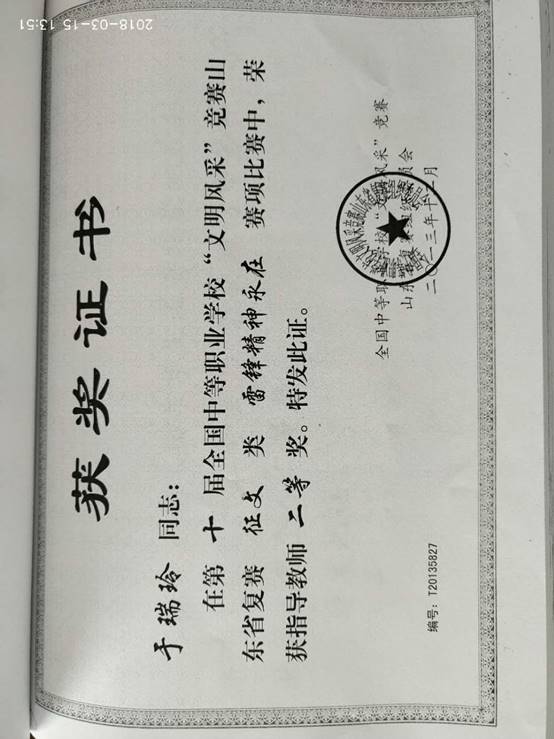 2018-03-15 13:51
获奖证书
于瑞玲 同志：
在第 十 届全国中等职业学校“文明风采”竞赛山
东省复赛 征文 类 雷锋精神永在 赛项比赛中，荣
获指导教师 二等 奖。特发此证。
全国中等职业学校“文明风采”竞赛
山东省复赛组织委员会
二〇一三年十一月
编号：T20135827